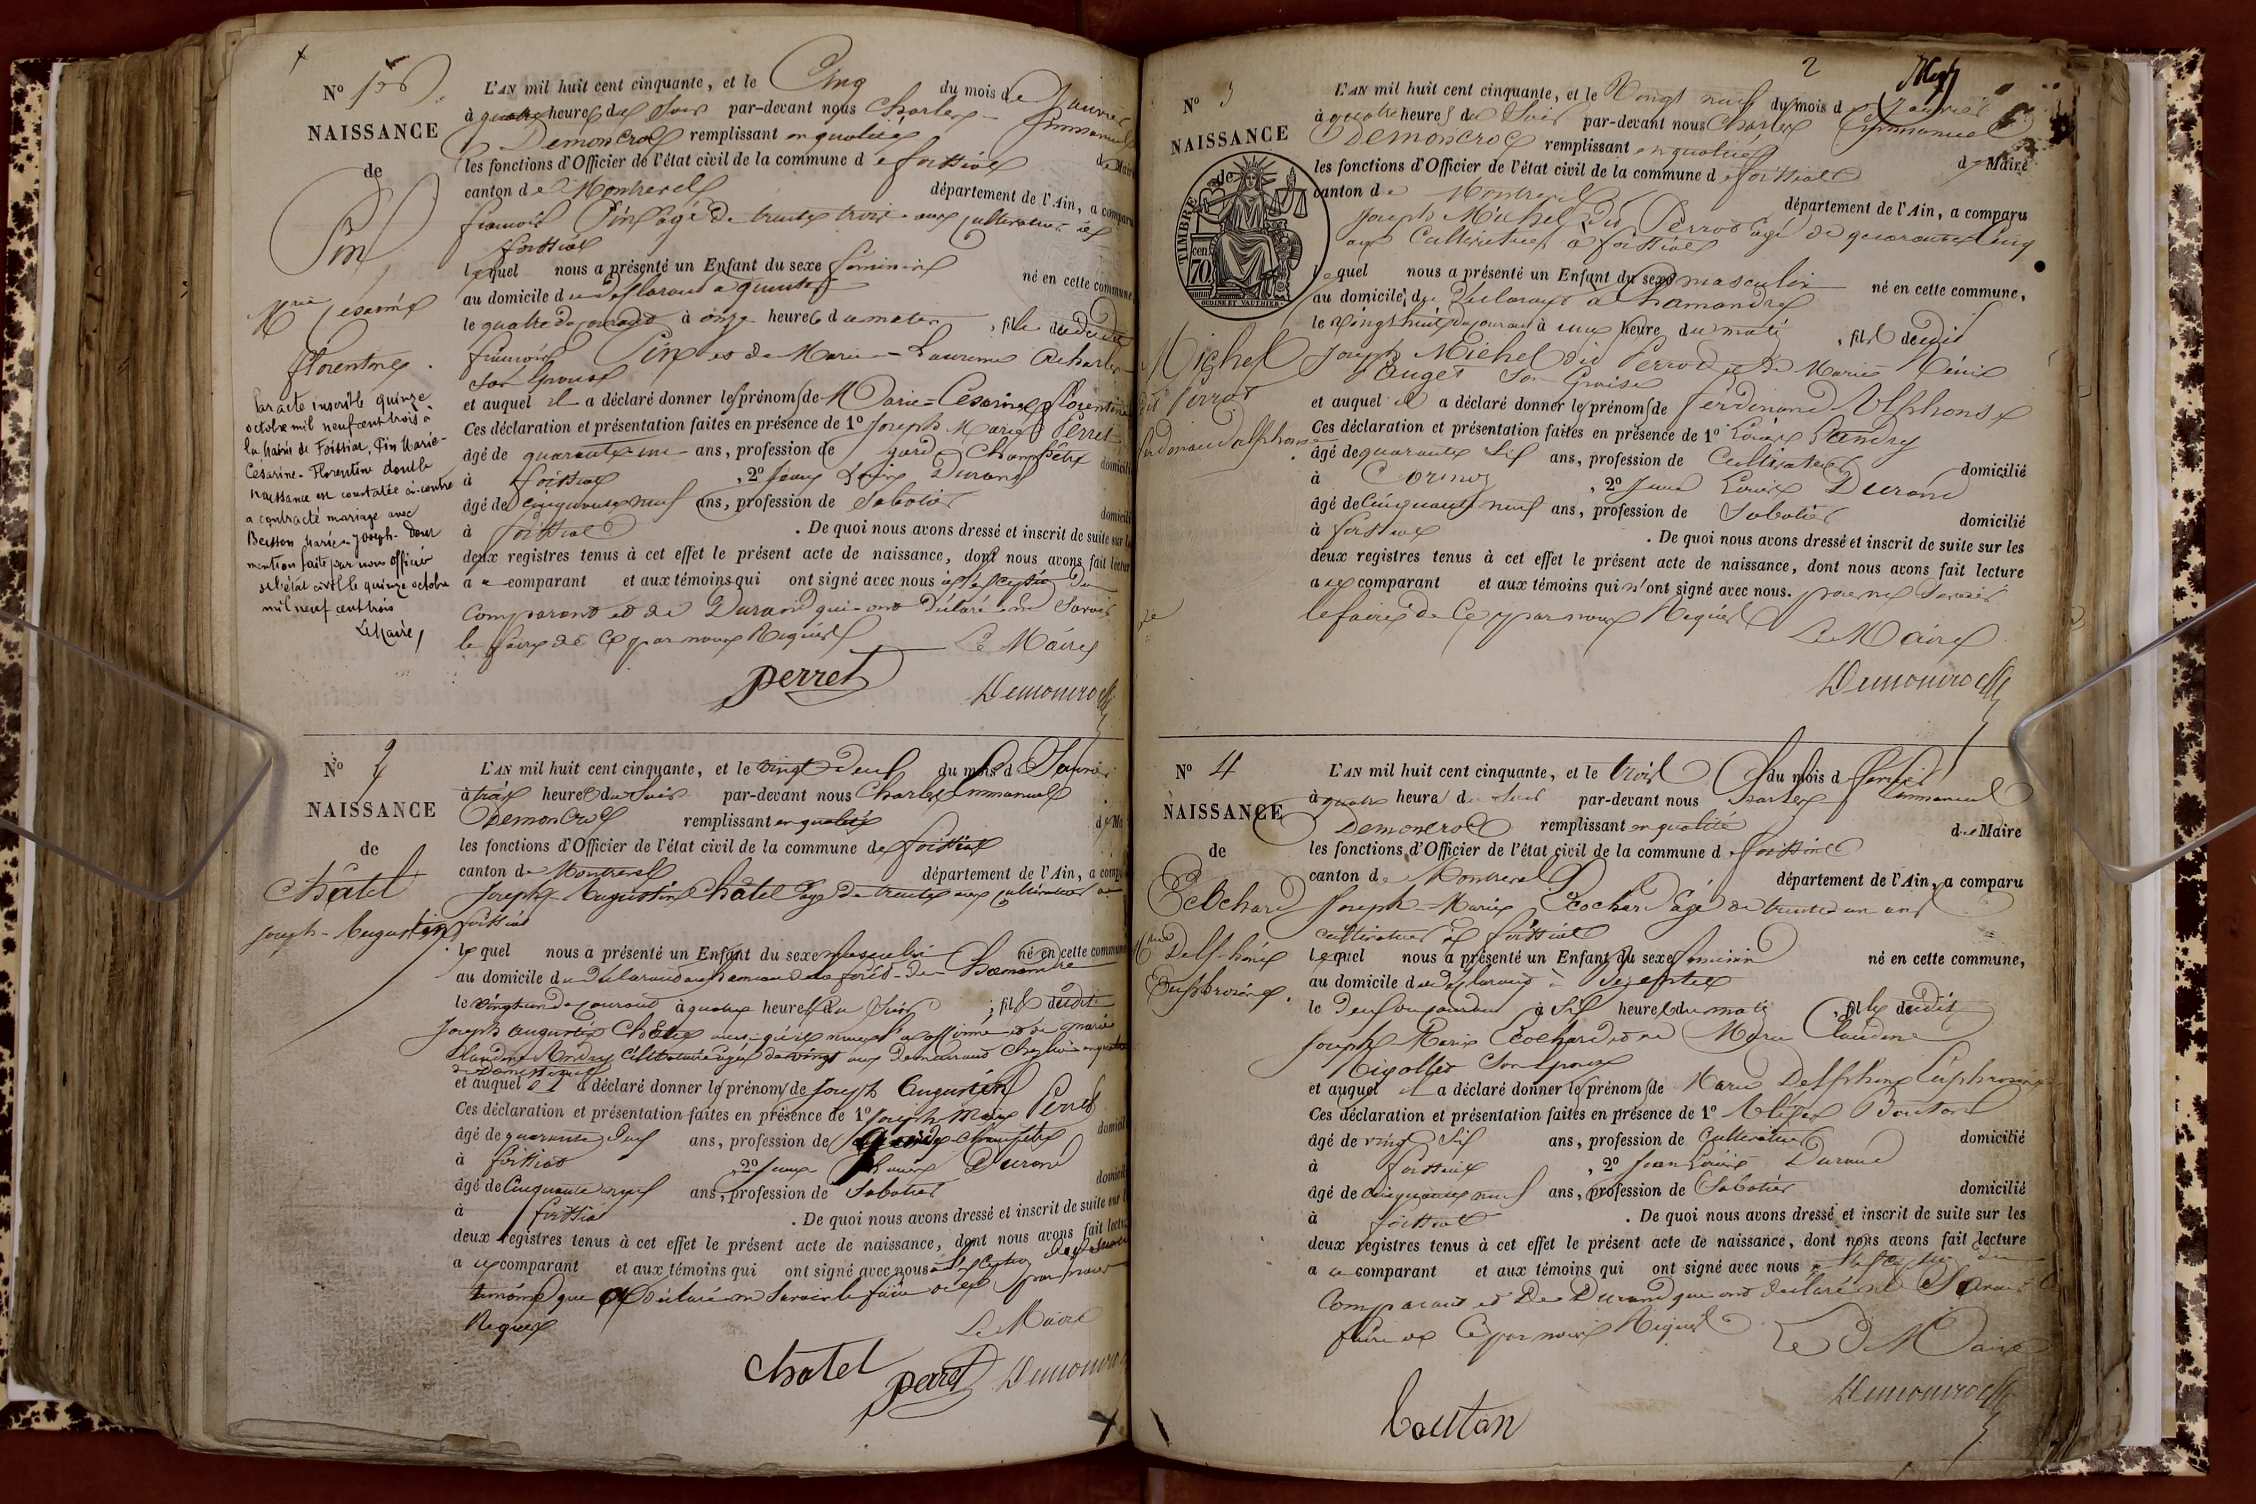 NAISSANCE
de
Pin
Mie Cesarine
florentine
par acte inscrit le quinze
octobre mil neuf cent trois à
la Mairie de Foissiat, Pin Marie-
Cesarine-Florentine dont la
naissance est constatée ci-contre
a contracté mariage avec
Besson Marie-Joseph. Dont
mention faite par nous officier
de l'état civil le quinze octobre
mil neuf cent trois
Le Maire,
L'AN mil huit cent cinquante, et le Cinq du mois de Janvier
à quatre heures du Soir par-devant nous Charles Emmanuel
Demoncrol remplissant en qualité de Maire
les fonctions d'Officier de l'état civil de la commune de foissiat
canton de Montrevel département de l'Ain, a comparu
françois Pin âgé de trente trois ans Cultivateur à
foissiat
lequel nous a présenté un Enfant du sexe féminin né en cette commune
au domicile du déclarant à
le quatre du courant à onze heures du matin, fille dudit
françois Pin et de Marie-Laurence
son épouse
et auquel il a déclaré donner les prénoms de Marie-Cesarine florentine
Ces déclaration et présentation faites en présence de 1° Joseph Marie Perret
âgé de quarante ans, profession de garde Champêtre domicilié
à foissiat, 2° Jean Louis Durand
âgé de cinquante neuf ans, profession de Sabotier domicilié
à foissiat. De quoi nous avons dressé et inscrit de suite sur les
deux registres tenus à cet effet le présent acte de naissance, dont nous avons fait lecture
a ce comparant et aux témoins qui ont signé avec nous à l'exception du
Comparant et de Durand qui ont déclaré ne Savoir
le faire de ce par nous Requis
Le Maire
perret
N° 2
NAISSANCE
de
Châtel
Joseph-Augustin
L'AN mil huit cent cinquante, et le vingt deux du mois de Janvier
à trois heures du Soir par-devant nous Charles Emmanuel
Demoncrol remplissant en qualité de Maire
les fonctions d'Officier de l'état civil de la commune de foissiat
canton de Montrevel département de l'Ain, a comparu
Joseph Augustin Châtel âgé de trente ans cultivateur à
foissiat
lequel nous a présenté un Enfant du sexe masculin né en cette commune
au domicile du déclarant
le vingt un du courant à quatre heures du Soir; fils dudit
Joseph Augustin Châtel ainsi qu'il nous l'a affirmé et de Marie
Claudine Andry Cultivatrice âgée de vingt ans demeurant chez lui en qualité
de domestique
et auquel il a déclaré donner les prénoms de Joseph Augustin
Ces déclaration et présentation faites en présence de 1° Joseph Marie Perret
âgé de quarante deux ans, profession de garde-champêtre domicilié
à foissiat, 2° Jean Louis Durand
âgé de Cinquante neuf ans, profession de Sabotier domicilié
à foissiat. De quoi nous avons dressé et inscrit de suite sur les
deux registres tenus à cet effet le présent acte de naissance, dont nous avons fait lecture
a ce comparant et aux témoins qui ont signé avec nous à l'exception du second
témoin que a déclaré ne Savoir le faire de ce par nous
Requis
Le Maire
chatel perret
2
N° 3
NAISSANCE
de
TIMBRE
70 cen
OUDINÉ ET VAUTHIER
Michel
dit Perrot
ferdinand alphonse
L'AN mil huit cent cinquante, et le Vingt neuf du mois de Janvier
à quatre heures du Soir par-devant nous Charles Emmanuel
Demoncrol remplissant en qualité de Maire
les fonctions d'Officier de l'état civil de la commune de foissiat
canton de Montrevel département de l'Ain, a comparu
Joseph Michel Dit Perrot âgé de quarante Cinq
ans Cultivateur à foissiat
lequel nous a présenté un Enfant du sexe masculin né en cette commune,
au domicile du Déclarant à
le Vingt huit du courant à une heure du matin, fils dudit
Joseph Michel dit Perrot et de Marie
Son Epouse
et auquel il a déclaré donner les prénoms de ferdinand Alphonse
Ces déclaration et présentation faites en présence de 1° Louis
âgé de quarante Six ans, profession de Cultivateur domicilié
à Cormoz, 2° Jean Louis Durand
âgé de Cinquante neuf ans, profession de Sabotier domicilié
à foissiat. De quoi nous avons dressé et inscrit de suite sur les
deux registres tenus à cet effet le présent acte de naissance, dont nous avons fait lecture
a ce comparant et aux témoins qui n'ont signé avec nous. pour ne Savoir
le faire de Ce par nous Requis
Le Maire
N° 4
NAISSANCE
de
Ecochard
Mie Delphine
Euphrosine.
L'AN mil huit cent cinquante, et le trois du mois de fevrier
à quatre heures du Soir par-devant nous Charles Emmanuel
Demoncrol remplissant en qualité de Maire
les fonctions d'Officier de l'état civil de la commune de foissiat
canton de Montrevel département de l'Ain, a comparu
Joseph-Marie Ecochard âgé de trente un ans
cultivateur à foissiat
Lequel nous a présenté un Enfant du sexe féminin né en cette commune,
au domicile du déclarant à
le Deux du courant à Six heures du matin, fille dudit
Joseph Marie Ecochard et de Marie Claudine
Rigollet Son épouse
et auquel il a déclaré donner les prénoms de Marie Delphine Euphrosine
Ces déclaration et présentation faites en présence de 1° Boutan
âgé de vingt Six ans, profession de Cultivateur domicilié
à foissiat, 2° Jean Louis Durand
âgé de cinquante neuf ans, profession de Sabotier domicilié
à foissiat. De quoi nous avons dressé et inscrit de suite sur les
deux registres tenus à cet effet le présent acte de naissance, dont nous avons fait lecture
a ce comparant et aux témoins qui ont signé avec nous à l'exception du
Comparant et De Durand qui ont déclaré ne Savoir le
faire de Ce par nous Requis
Le Maire
boutan